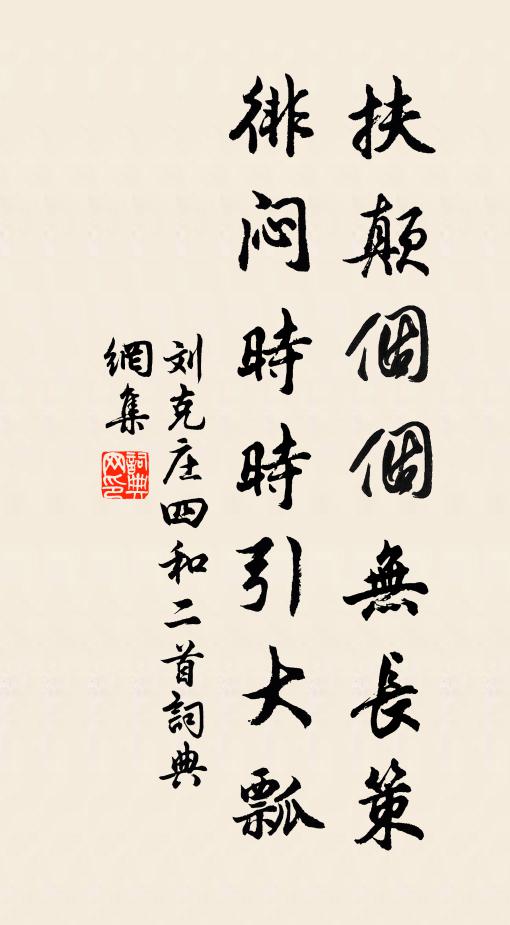 扶顛個個無長策
徘闷時時引大瓢
刘克庄四和二首詞典
網集
詞典
网印